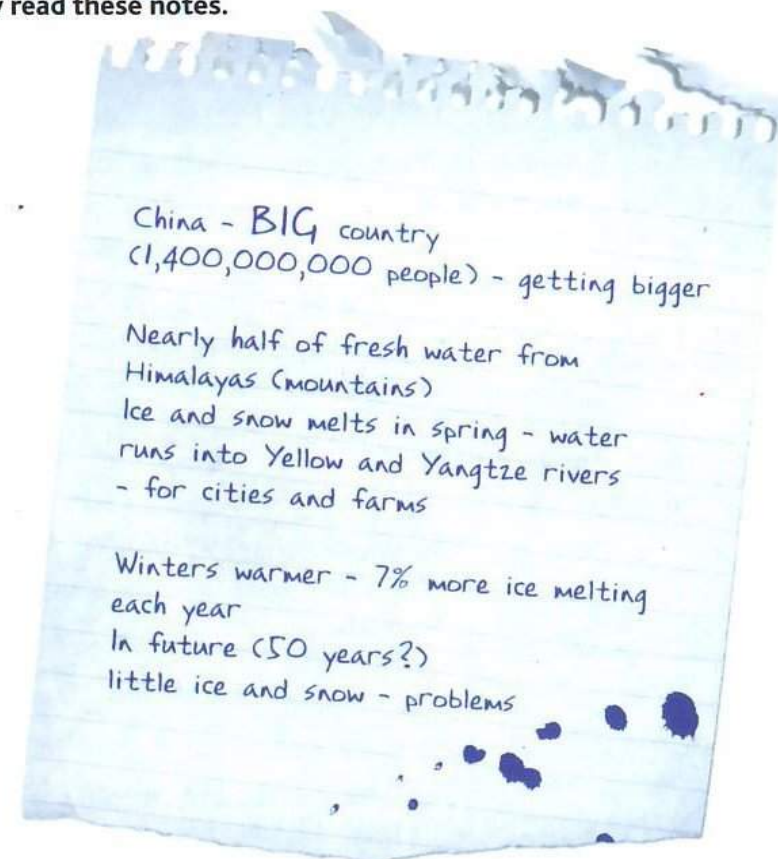 read these notes.
China - BIG country
(1,400,000,000 people) - getting bigger
Nearly half of fresh water from
Himalayas (mountains)
Ice and snow melts in spring - water
runs into Yellow and Yangtze rivers
- for cities and farms
Winters warmer - 7% more ice melting
each year
In future (50 years?)
little ice and snow - problems